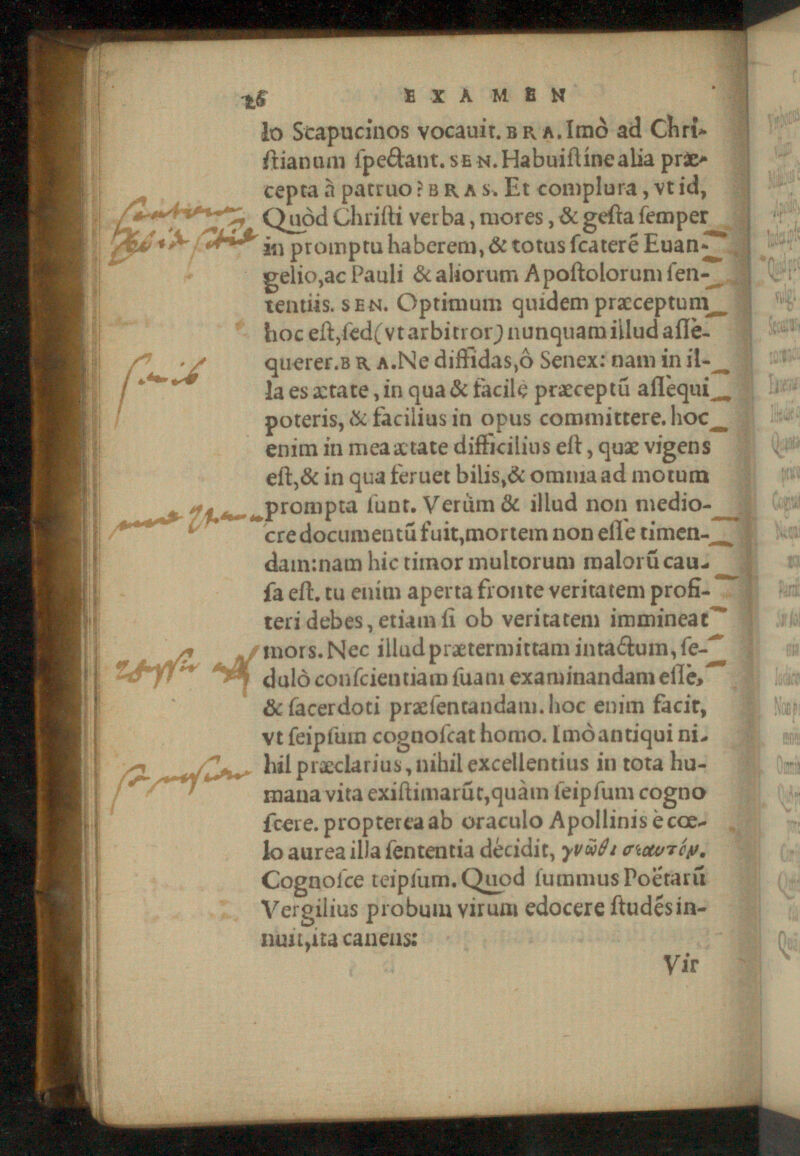 26 EXAMEN
lo Scapucinos vocauit. BRA. Imò ad Chri-
ſtianum ſpectant. SEN. Habuiſtine alia præ-
cepta à patruo? BRAS. Et complura, vt id,
Quòd Chriſti verba, mores, & geſta ſemper
in promptu haberem, & totus ſcateré Euan-
gelio, ac Pauli & aliorum Apoſtolorum ſen-
tentiis. SEN. Optimum quidem præceptum
hoc eſt, ſed (vt arbitror) nunquam illud aſſe-
querer. BRA. Ne diffidas, ô Senex: nam in il-
la es ætate, in qua & facilè præceptũ aſſequi
poteris, & facilius in opus committere. hoc
enim in mea ætate difficilius eſt, quæ vigens
eſt, & in qua feruet bilis, & omnia ad motum
prompta ſunt. Verùm & illud non medio-
cre documentũ fuit, mortem non eſſe timen-
dam: nam hic timor multorum malorũ cau-
ſa eſt. tu enim aperta fronte veritatem profi-
teri debes, etiam ſi ob veritatem immineat
mors. Nec illud prætermittam intactum, ſe-
dulò conſcientiam ſuam examinandam eſſe,
& ſacerdoti præſentandam. hoc enim facit,
vt ſeipſum cognoſcat homo. Imò antiqui ni-
hil præclarius, nihil excellentius in tota hu-
mana vita exiſtimarũt, quàm ſeipſum cogno
ſcere. propterea ab oraculo Apollinis è cœ-
lo aurea illa ſententia décidit, γνῶθι σεαυτόν.
Cognoſce teipſum. Quod ſummus Poëtarũ
Vergilius probum virum edocere ſtudés in-
nuit, ita canens:
Vir